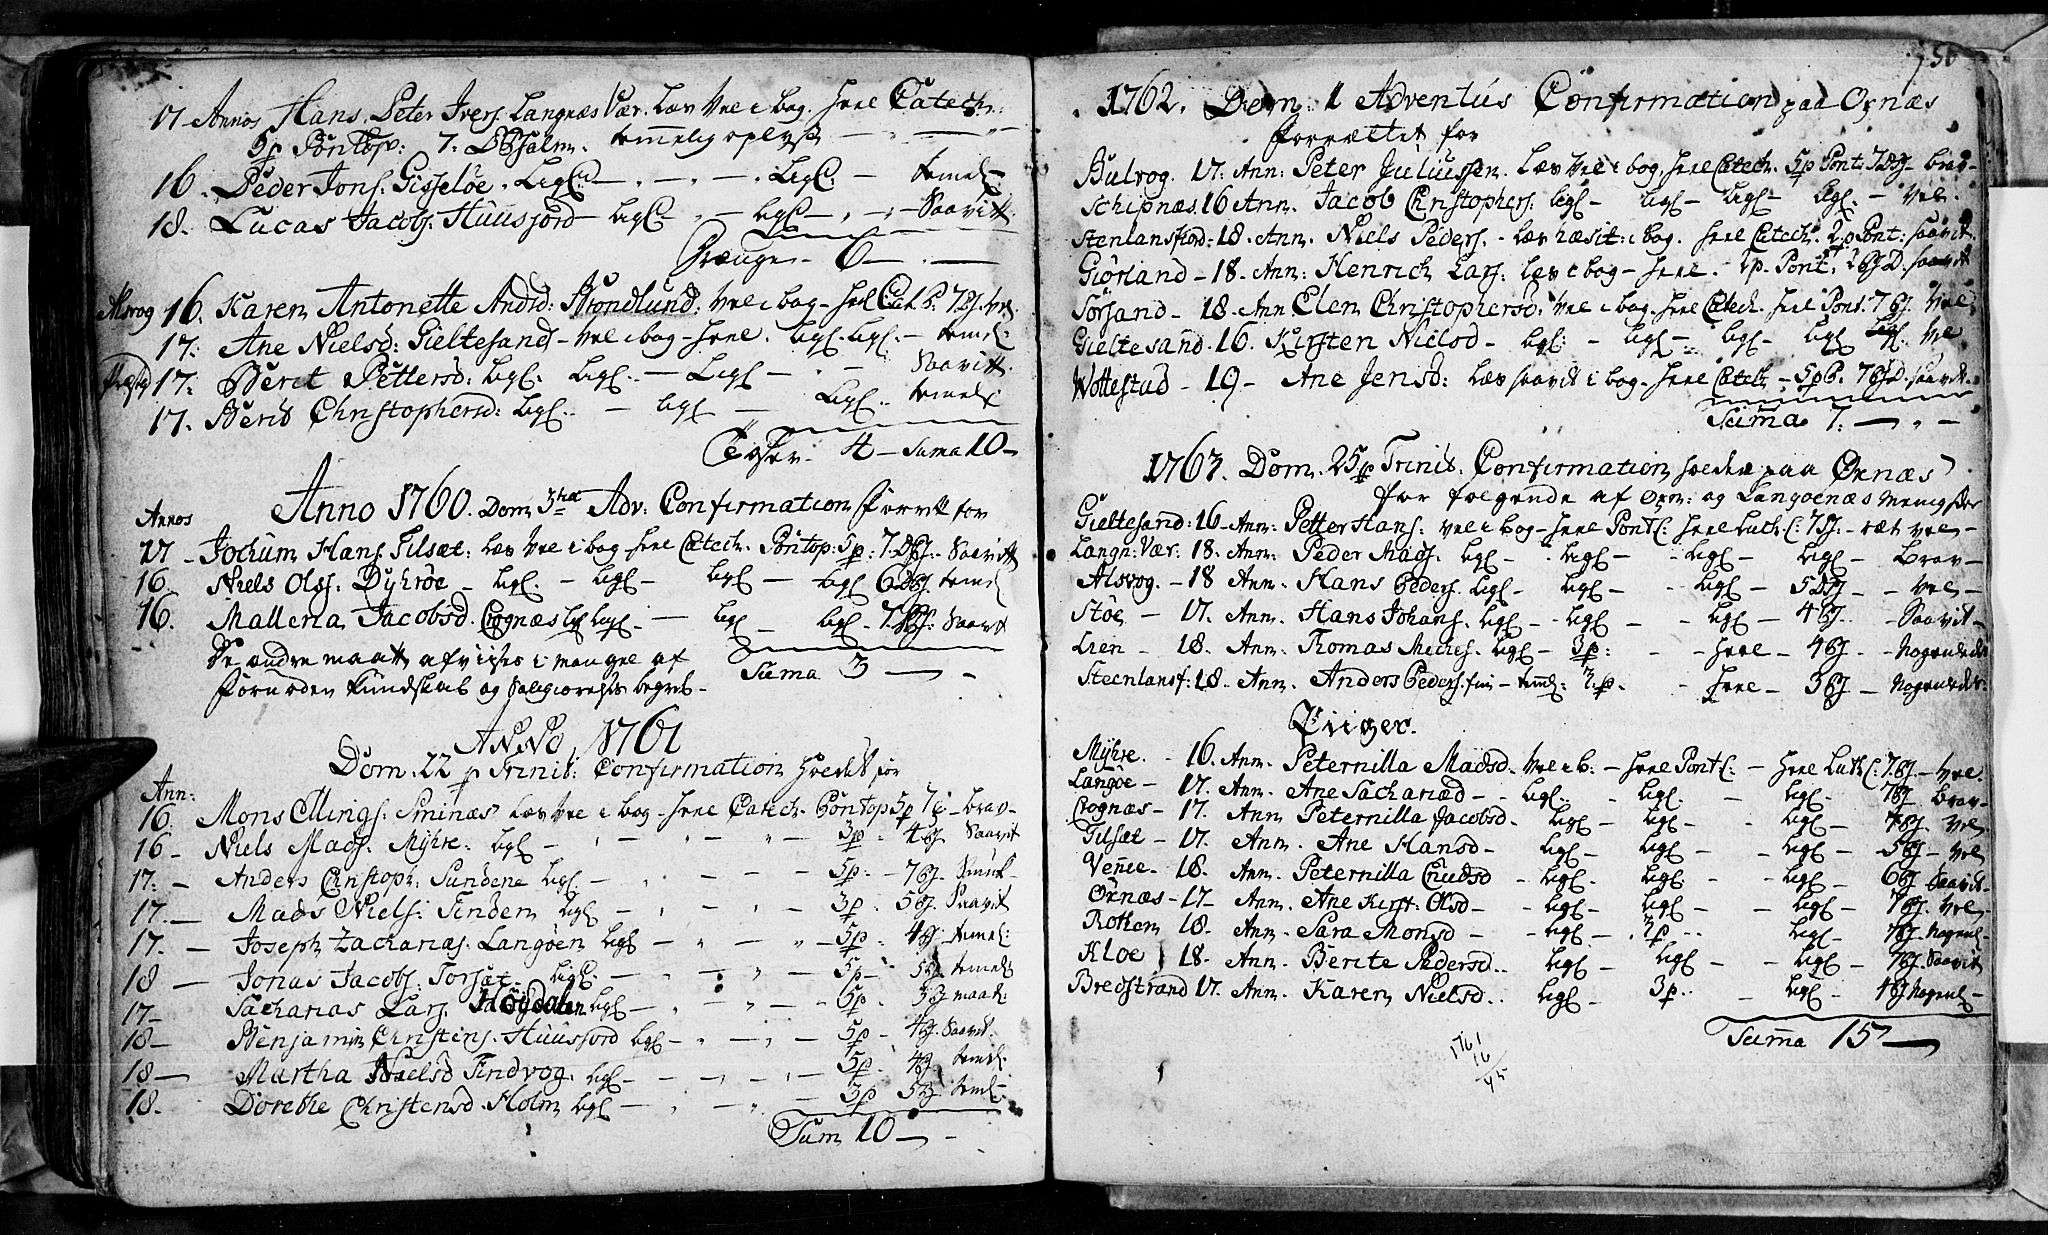 17 Annos Hans Peter Ivers. Langnæs Vær. læs vel i bog. hele Catech:
5p Pontop: 7. Psalm. temmelig oplyst
16. Peder Jons. Gisseløe. ligl. — ligl. — temel.
18. Lucas Jacobs. Huusfiord — ligl. — ligl. — Saavitt.
Drænge — 6 —
Alsvog 16. Karen Antonette Andrd: Brondlund. vel i bog — hel Cat. 7 vel
17. Ane Nielsd: Gieltesand — vel i bog — hele. ligl. ligl. — temel:
17: Berit Pettersd: ligl. ligl. — ligl — Saavitt
17. Berit Christophersd: ligl. — ligl — ligl. temel:
Pigher — 4 — Suma 10 —
Anno 1760. Dom 3tia Adv: Confirmation forrett for
Annos
17 — Jochum Hans. Tilsæt: læs vel i bog hele Catech. Pontop: 5p: 7. — Saavitt
16. Niels Olss. Dyhrøe — ligl. — ligl — ligl — ligl 6 temel
16. Mallena Jacobsd. Crognæs ligl ligl. — ligl — ligl — 7. Saavitt
De andre maatt afviises i mangel af
fornøden kundskab og begreb —
Suma 3 —
ANNO 1761
Dom. 22 p Trinit: Confirmation holdet for
Ann:
16 Mons Ellings: Sminæs læs vel i bog — hele Catech. Pontop 5p 7 — brav —
16 — Niels Mads. Myhre. ligl — 3p. 4 Saavit
17: — Anders Christoph: Sundene ligl. — 5p. — 7 Smuk —
17. — Mads Niels: Tinden ligl — 3p. 5 Saavit
17. — Joseph Zacharias. Langøen ligl — 5p. 4 temel:
18 — Jonas Jacobs. Torsæt. ligl. — 5p — 5 temel
17 — Sacharias Lars. Høydalen ligl — 5p. 3 maat:
18 — Benjamin Christens. Huusfiord ligl — 5p. 4 Saavit.
18 — Martha Nielsd Tindvog. ligl — 5p. 4 temel:
18. Dorethe Christensd Holm ligl — 3p 5 temel:
Sum 10 —
1762. Dom. 1 Adventus Confirmation paa Øxnæs
forrettet for
Bulvog. 17: Ann: Peter Juliussen. læs vel i bog, hele Catech. 5p Pont: 7 brav —
Schipnæs. 16 Ann. Jacob Christophers: ligl — ligl — ligl — ligl. — vel.
Stenlansfiord: 18. Ann. Niels Peders. — læs hæsit: i bog. hele Catech. 2p Pont: saavit
Giørland — 18 — Ann: Henrich Lars: læs i bog — hele. Pont: saavit
Torsand — 18 Ann Elen Christophersd: vel i bog — hele Catech. hele Pont. 7 vel
Gieltesand. 16. Kirsten Nielsd — ligl: — ligl — ligl — ligl ligl. vel
Wottestad — 19 — Ane Jensd: læs saavit i bog — hele Catech — 5p 7 saavit.
Suma 7. —
1763. Dom. 25 p Trinit. Confirmation holden paa Øxnæs
for følgende af Øxn: og Langenæs Menigheder
Gieltesand: 16 — Ann. Petter Hans: vel i bog — hele Pont: hele Luth: 7 — ræt vel —
Langn: Vær: 18. Ann: Peder Mads. ligl — ligl — ligl — ligl — Brav —
Alsvog. — 18 Ann. Hans Peders. ligl — ligl — ligl — 5 — vel —
Støe — 17. Ann. Hans Johans. ligl — ligl — ligl — 4 — Saavit —
Lien — 18. Ann. Thomas Michels. ligl — 3p: — hele — 4 — Nogenled:
Steenlansf: 18. Ann. Anders Peders. — 3p. — hele — 3 — Nogenledes:
Piiger.
Myhre. — 16. Ann. Peternilla Madsd. vel i b: — hele Pont: — hele Luth: 7. — vel.
Langøe — 17. Ann. Ane Sachariæd — ligl. ligl. — ligl — 7 Brav —
Crognæs — 17. Ann. Peternilla Jacobsd — ligl — ligl — ligl — 7. vel
Tilsæt — 17. Ann. Ane Hansd — ligl — ligl — ligl — 5 — vel
Vennee — 18. Ann. Peternilla Cnudsd — ligl — ligl — ligl — 6 Saavit —
Øxnæs — 17 — Ann. Ane Kirst: Olsd — ligl — ligl — ligl — 7 vel
Rothen 18. Ann. Sara Monsd — ligl — 3p — ligl — 7 Nogenl
Kloe 18. Ann. Berite Pedersd. ligl — ligl — ligl — 7 Saavit
Bredstrand 17. Ann. Karen Nielsd. ligl — 3p. — ligl — 4 Nogenl —
Suma 15 —
1761
16
45